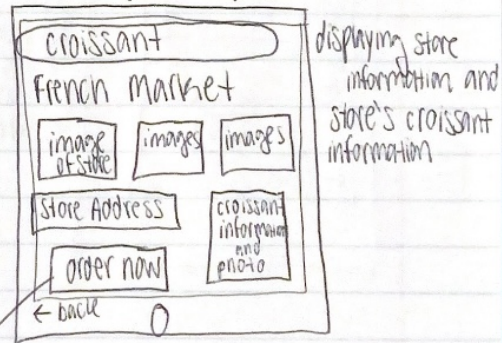 croissant
French Market
image
of store
images
images
Store Address
croissant
information
and
photo
order now
← back
displaying store
information and
store's croissant
information